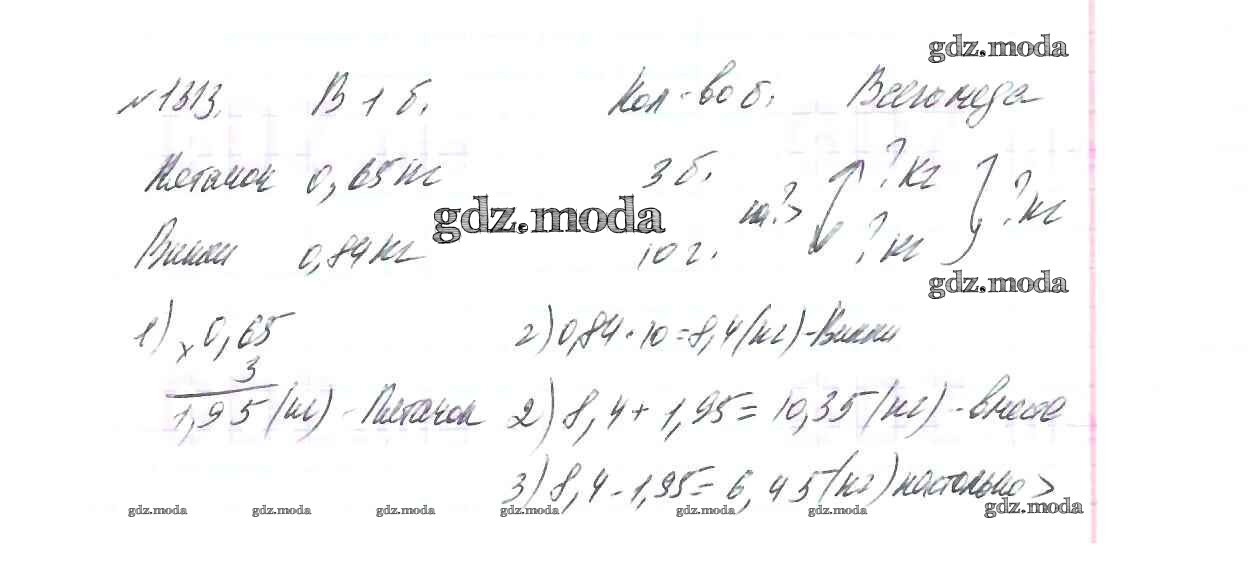 gdz.moda
№1313. В 1 б. Кол-во б. Всего меда
Пятачок 0,65 кг 3 б. ? кг
gdz.moda на ?> ? кг
Винни 0,84 кг 10 г. ? кг
gdz.moda
1) × 0,65 2) 0,84 · 10 = 8,4 (кг) - Винни
3
1,95 (кг) - Пятачок 2) 8,4 + 1,95 = 10,35 (кг) - вместе
3) 8,4 - 1,95 = 6,45 (кг) настолько >
gdz.moda gdz.moda gdz.moda gdz.moda gdz.moda gdz.moda gdz.moda